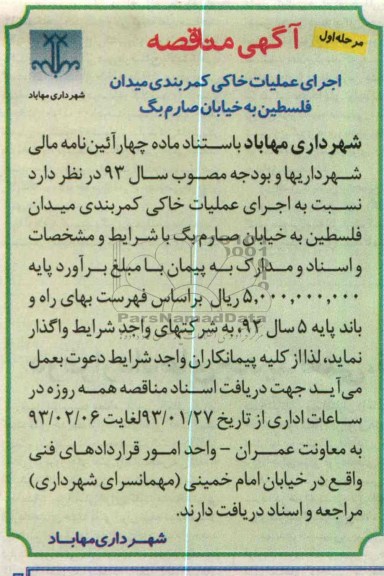 مرحله اول
آگهی مناقصه
شهرداری مهاباد
اجرای عملیات خاکی کمربندی میدان
فلسطین به خیابان صارم بگ
شهرداری مهاباد باستناد ماده چهار آئین‌نامه مالی
شهرداریها و بودجه مصوب سال ۹۳ در نظر دارد
نسبت به اجرای عملیات خاکی کمربندی میدان
فلسطین به خیابان صارم بگ با شرایط و مشخصات
و اسناد و مدارک به پیمان با مبلغ برآورد پایه
۵,۰۰۰,۰۰۰,۰۰۰ ریال براساس فهرست بهای راه و
باند پایه ۵ سال ۹۲، به شرکتهای واجد شرایط واگذار
نماید، لذا از کلیه پیمانکاران واجد شرایط دعوت بعمل
می‌آید جهت دریافت اسناد مناقصه همه روزه در
ساعات اداری از تاریخ ۹۳/۰۱/۲۷ لغایت ۹۳/۰۲/۰۶
به معاونت عمران – واحد امور قراردادهای فنی
واقع در خیابان امام خمینی (مهمانسرای شهرداری)
مراجعه و اسناد دریافت دارند.
شهرداری مهاباد
ParsNamadData